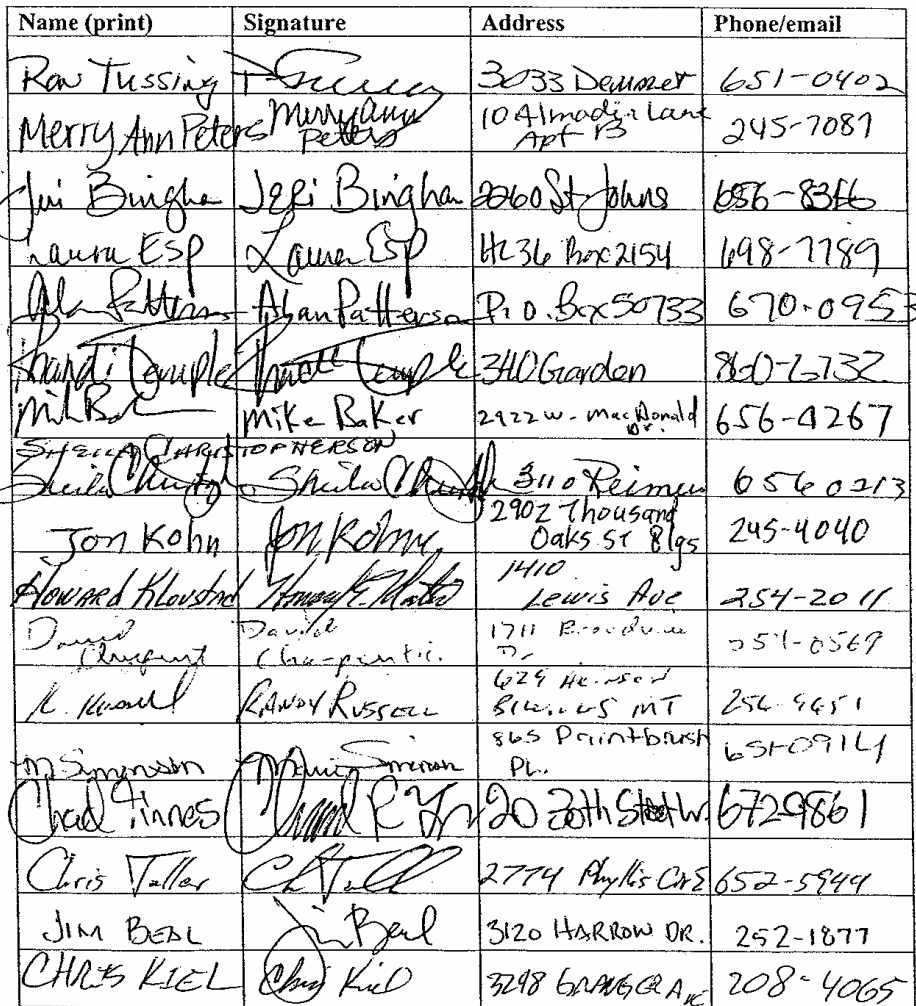 Name (print) Signature Address Phone/email
Ron Tussing 3033 Demaret 651-0402
Merry Ann Peters Merry Ann Peters 10 Almadin Lane Apt B 245-7087
Jeri Bingham 2260 St Johns 656-8346
Laura Esp Laura Esp HC 36 Box 2154 698-7789
Alan Patterson Alan Patterson P.O. Box 50733 670-0953
Temple Temple 340 Garden 860-6732
Mike Baker 2922 W. MacDonald Dr. 656-4267
SHEILA CHRISTOPHERSON
Sheila Sheila 3110 Reimers 656 0213
Jon Kohn Jon Kohn 2902 Thousand Oaks St Blgs 245-4040
Howard Klovstad 1410 Lewis Ave 254-2011
David David Charpentier 1711 Dr
K. Russell RANDY RUSSELL 629 Billings MT
M Simonson Simonson 865 Paintbrush PL. 651-0914
Chad Tinnes 20 30th Street W. 672-9861
Chris Taller 2774 Phyllis Cir E 652-5944
JIM BEAL Jim Beal 3120 HARROW DR. 252-1877
CHRIS KIEL Chris Kiel 3298 GRANGER AVE 208-4065